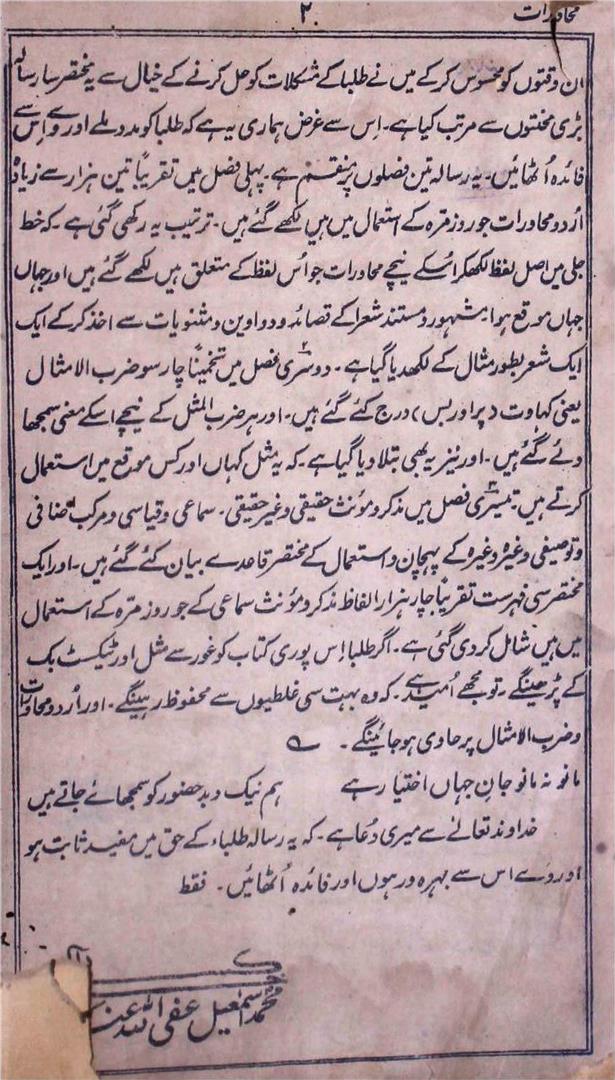 محاورات ۲
ان دقتوں کو محسوس کرکے میں نے طلبا کے مشکلات کو حل کرنے کے خیال سے یہ مختصر سا رسالہ
بڑی محنتوں سے مرتب کیا ہے۔ اِس سے غرض ہماری یہ ہے کہ طلبا کو مدد ملے اور وے اِس سے
فائدہ اُٹھائیں۔ یہ رسالہ تین فصلوں پر منقسم ہے۔ پہلی فصل میں تقریباً تین ہزار سے زیادہ
اُردو محاورات جو روز مرّہ کے استعمال میں ہیں لکھے گئے ہیں۔ ترتیب یہ رکھی گئی ہے۔ کہ خط
جلی میں اصل لفظ لکھکر اُسکے نیچے محاورات جو اُس لفظ کے متعلق ہیں لکھے گئے ہیں اور جہاں
جہاں موقع ہوا۔ مشہور و مستند شعرا کے قصائد و دواوین و مثنویات سے اخذ کرکے ایک
ایک شعر بطور مثال کے لکھدیا گیا ہے۔ دوسری۲ فصل میں تخمیناً چار سو ضرب الامثال
یعنی کہاوت (پراوربس) درج کئے گئے ہیں۔ اور ہر ضرب المثل کے نیچے اسکے معنی سمجھا
دئے گئے ہیں۔ اور نیز یہ بھی بتلا دیا گیا ہے۔ کہ یہ مثل کہاں اور کس موقع میں استعمال
کرتے ہیں۔ تیسری۳ فصل میں مذکر و مؤنث حقیقی و غیر حقیقی۔ سماعی و قیاسی و مرکب اضافی
و توصیفی وغیرہ وغیرہ کے پہچان و استعمال کے مختصر قاعدے بیان کئے گئے ہیں۔ اور ایک
مختصر سی فہرست تقریباً چار ہزار الفاظ مذکر و مؤنث سماعی کے جو روز مرّہ کے استعمال
میں ہیں شامل کردی گئی ہے۔ اگر طلبا اِس پوری کتاب کو غور سے مثل اور ٹیکسٹ بک
کے پڑھینگے۔ تو مجھے اُمید ہے۔ کہ وہ بہت سی غلطیوں سے محفوظ رہینگے۔ اور اُردو محاورات
و ضرب الامثال پر حاوی ہوجائینگے۔
مانو نہ مانو جانِ جہاں اختیار ہے ہم نیک و بد حضور کو سمجھائے جاتے ہیں
خداوند تعالےٰ سے میری دُعا ہے۔ کہ یہ رسالہ طلباء کے حق میں مفید ثابت ہو
اور وے اس سے بہرہ ور ہوں اور فائدہ اُٹھائیں۔ فقط
محمد اسمٰعیل عفی اللہ عنہ